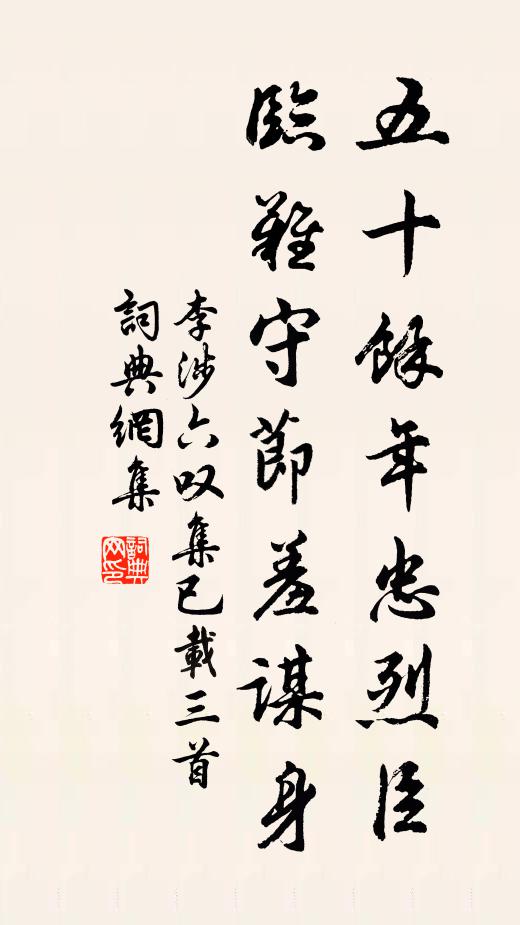 五十餘年忠烈臣
臨難守節羞謀身
李涉六叹集已載三首
詞典網集
詞典網印